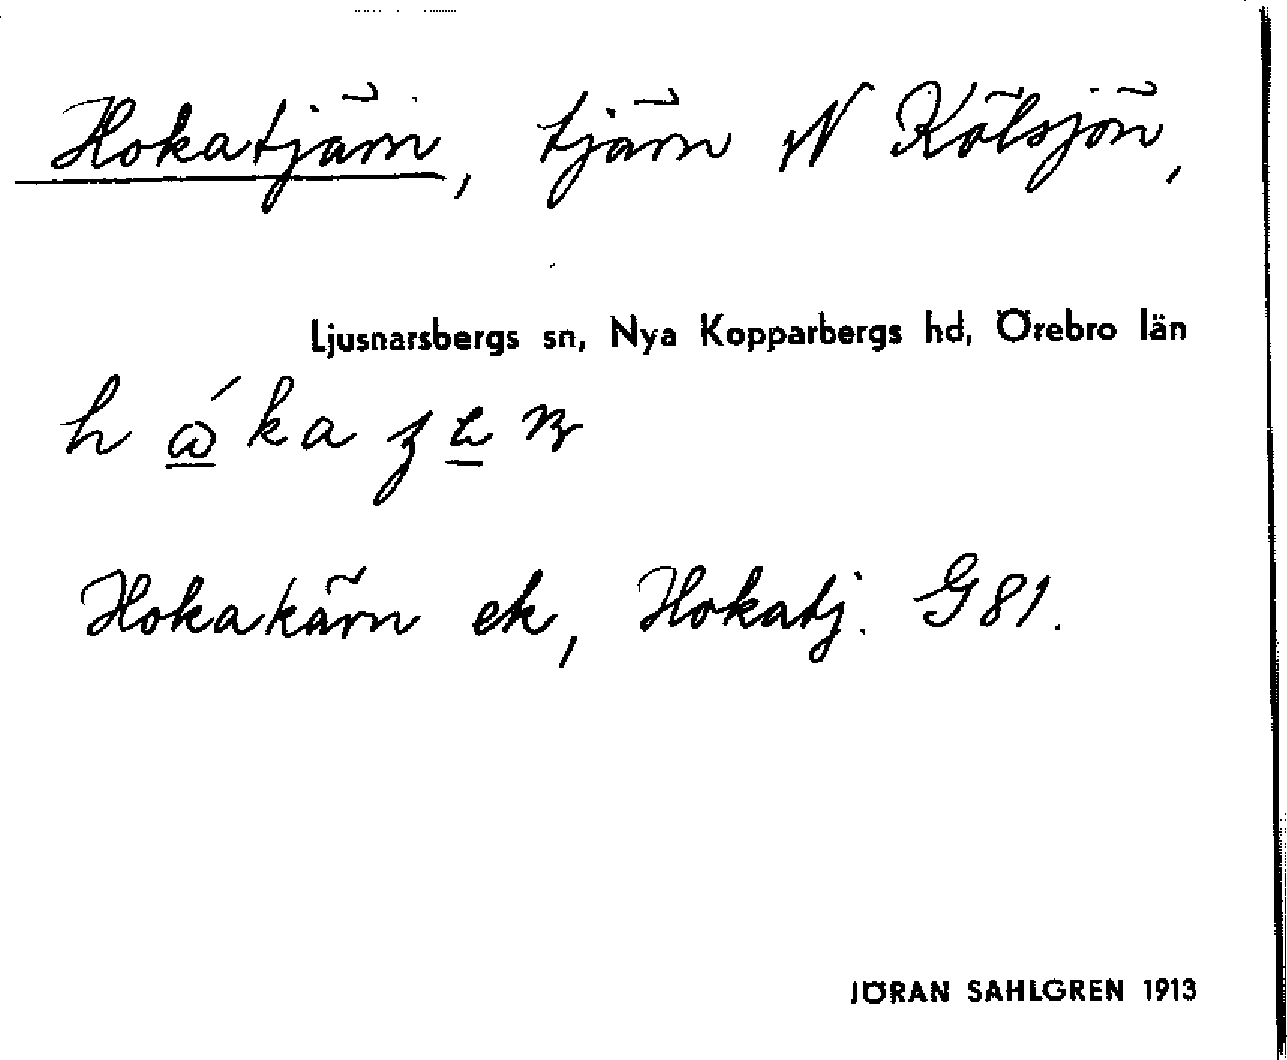 Hokatjärn, tjärn N Kölsjön,
Ljusnarsbergs sn, Nya Kopparbergs hd, Örebro län
Hokakärn ek, Hokatj. G 81.
JÖRAN SAHLGREN 1913